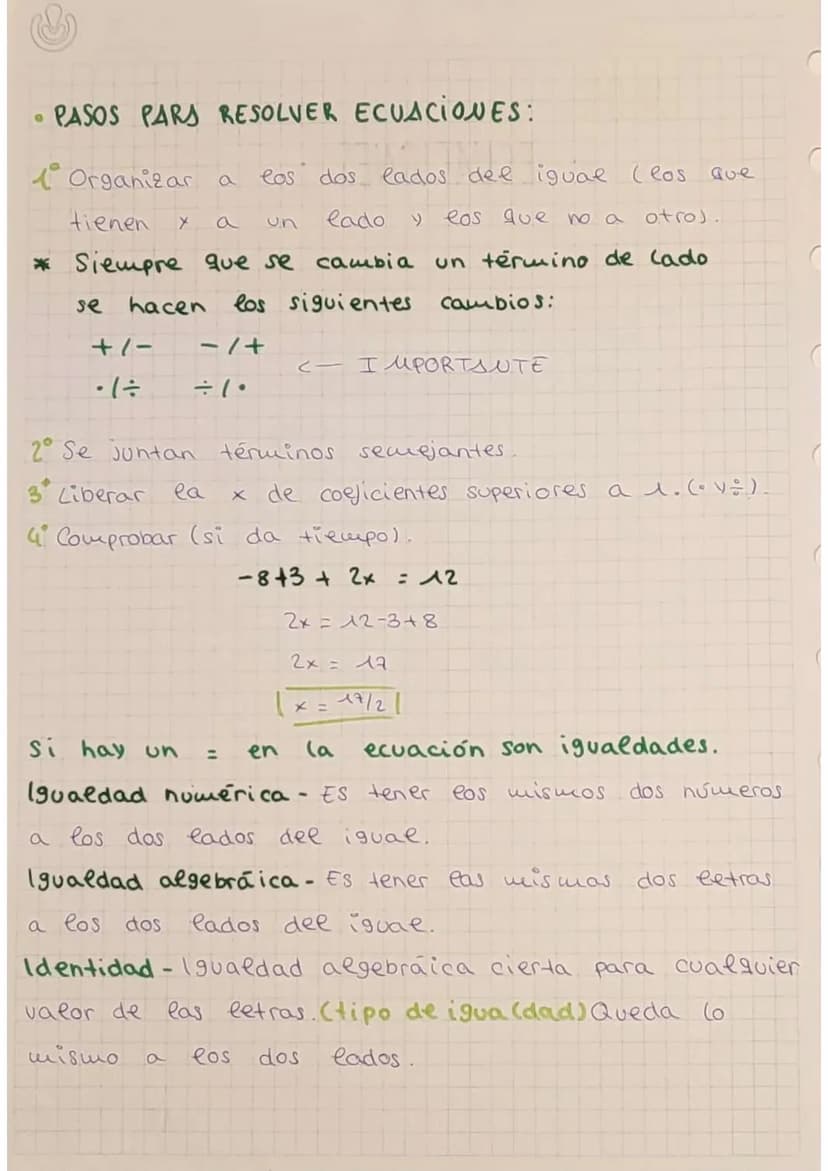 • PASOS PARA RESOLVER ECUACIONES:
1º Organizar a los dos lados del igual (los que
tienen x a un lado y los que no a otro).
* Siempre que se cambia un término de lado
se hacen los siguientes cambios:
+/- -/+
<— IMPORTANTE
·/÷ ÷/·
2º Se juntan términos semejantes.
3º Liberar la x de coeficientes superiores a 1. (· y ÷).
4º Comprobar (si da tiempo).
-8+3 + 2x = 12
2x = 12-3+8
2x = 17
x = 17/2
Si hay un = en la ecuación son igualdades.
Igualdad numérica - Es tener los mismos dos números
a los dos lados del igual.
Igualdad algebráica - Es tener las mismas dos letras
a los dos lados del igual.
Identidad - Igualdad algebráica cierta para cualquier
valor de las letras. (tipo de igualdad) Queda lo
mismo a los dos lados.